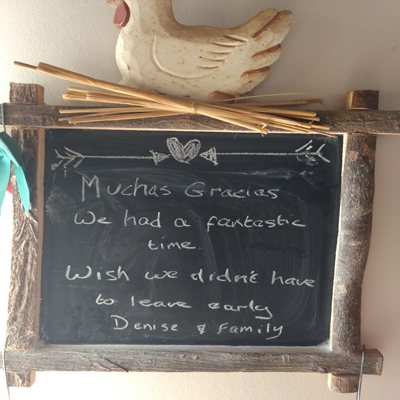 Muchas Gracias
We had a fantastic
time.
Wish we didn't have
to leave early
Denise & Family